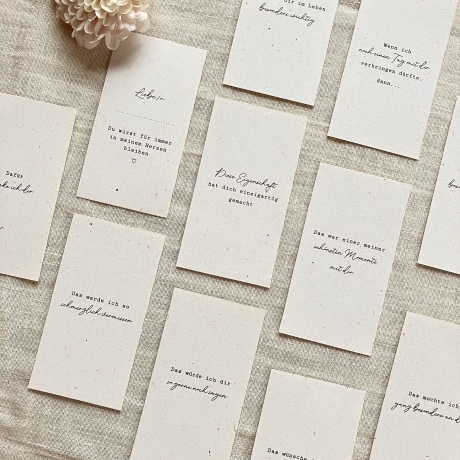 dir im Leben
besonders wichtig
Wenn ich
noch einen Tag mit dir
verbringen dürfte,
dann...
Liebe/r
Du wirst für immer
in meinem Herzen
bleiben
Diese Eigenschaft
hat dich einzigartig
gemacht
Dafür
ich dir
Das war einer meiner
schönsten Momente
mit dir
Das werde ich so
schmerzlich vermissen
Das würde ich dir
so gerne noch sagen
Das mochte ich
ganz besonders an
Das wünsche